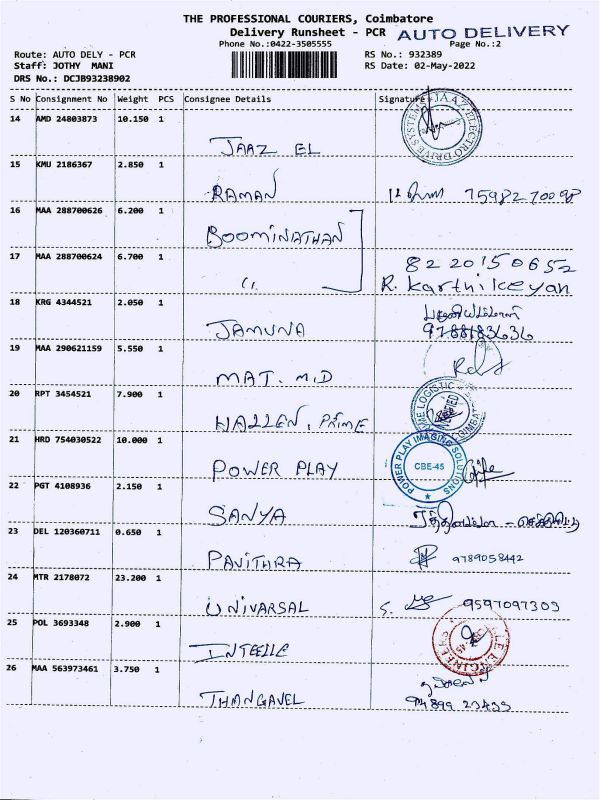 THE PROFESSIONAL COURIERS, Coimbatore
Delivery Runsheet - PCR AUTO DELIVERY
Phone No.:0422-3505555 Page No.:2
Route: AUTO DELY - PCR RS No.: 932389
Staff: JOTHY MANI RS Date: 02-May-2022
DRS No.: DCJB93238902
S No Consignment No Weight PCS Consignee Details Signature
14 AMD 24803873 10.150 1
JAAZ EL
15 KMU 2186367 2.850 1
RAMAN 7598270098
16 MAA 288700626 6.200 1
BOOMINATHAN
17 MAA 288700624 6.700 1 8220150652
R. Karthikeyan
18 KRG 4344521 2.050 1
JAMUNA 9788183636
19 MAA 290621159 5.550 1
MAT. M.D
20 RPT 3454521 7.900 1
PRIME
21 HRD 754030522 10.000 1
POWER PLAY POWER PLAY IMAGING SOLUTIONS CBE-45
22 PGT 4108936 2.150 1
SANYA
23 DEL 120360711 0.650 1
PAVITHRA 9789058442
24 MTR 2178072 23.200 1
UNIVARSAL S. 9597097303
25 POL 3693348 2.900 1
26 MAA 563973461 3.750 1
THANGAVEL